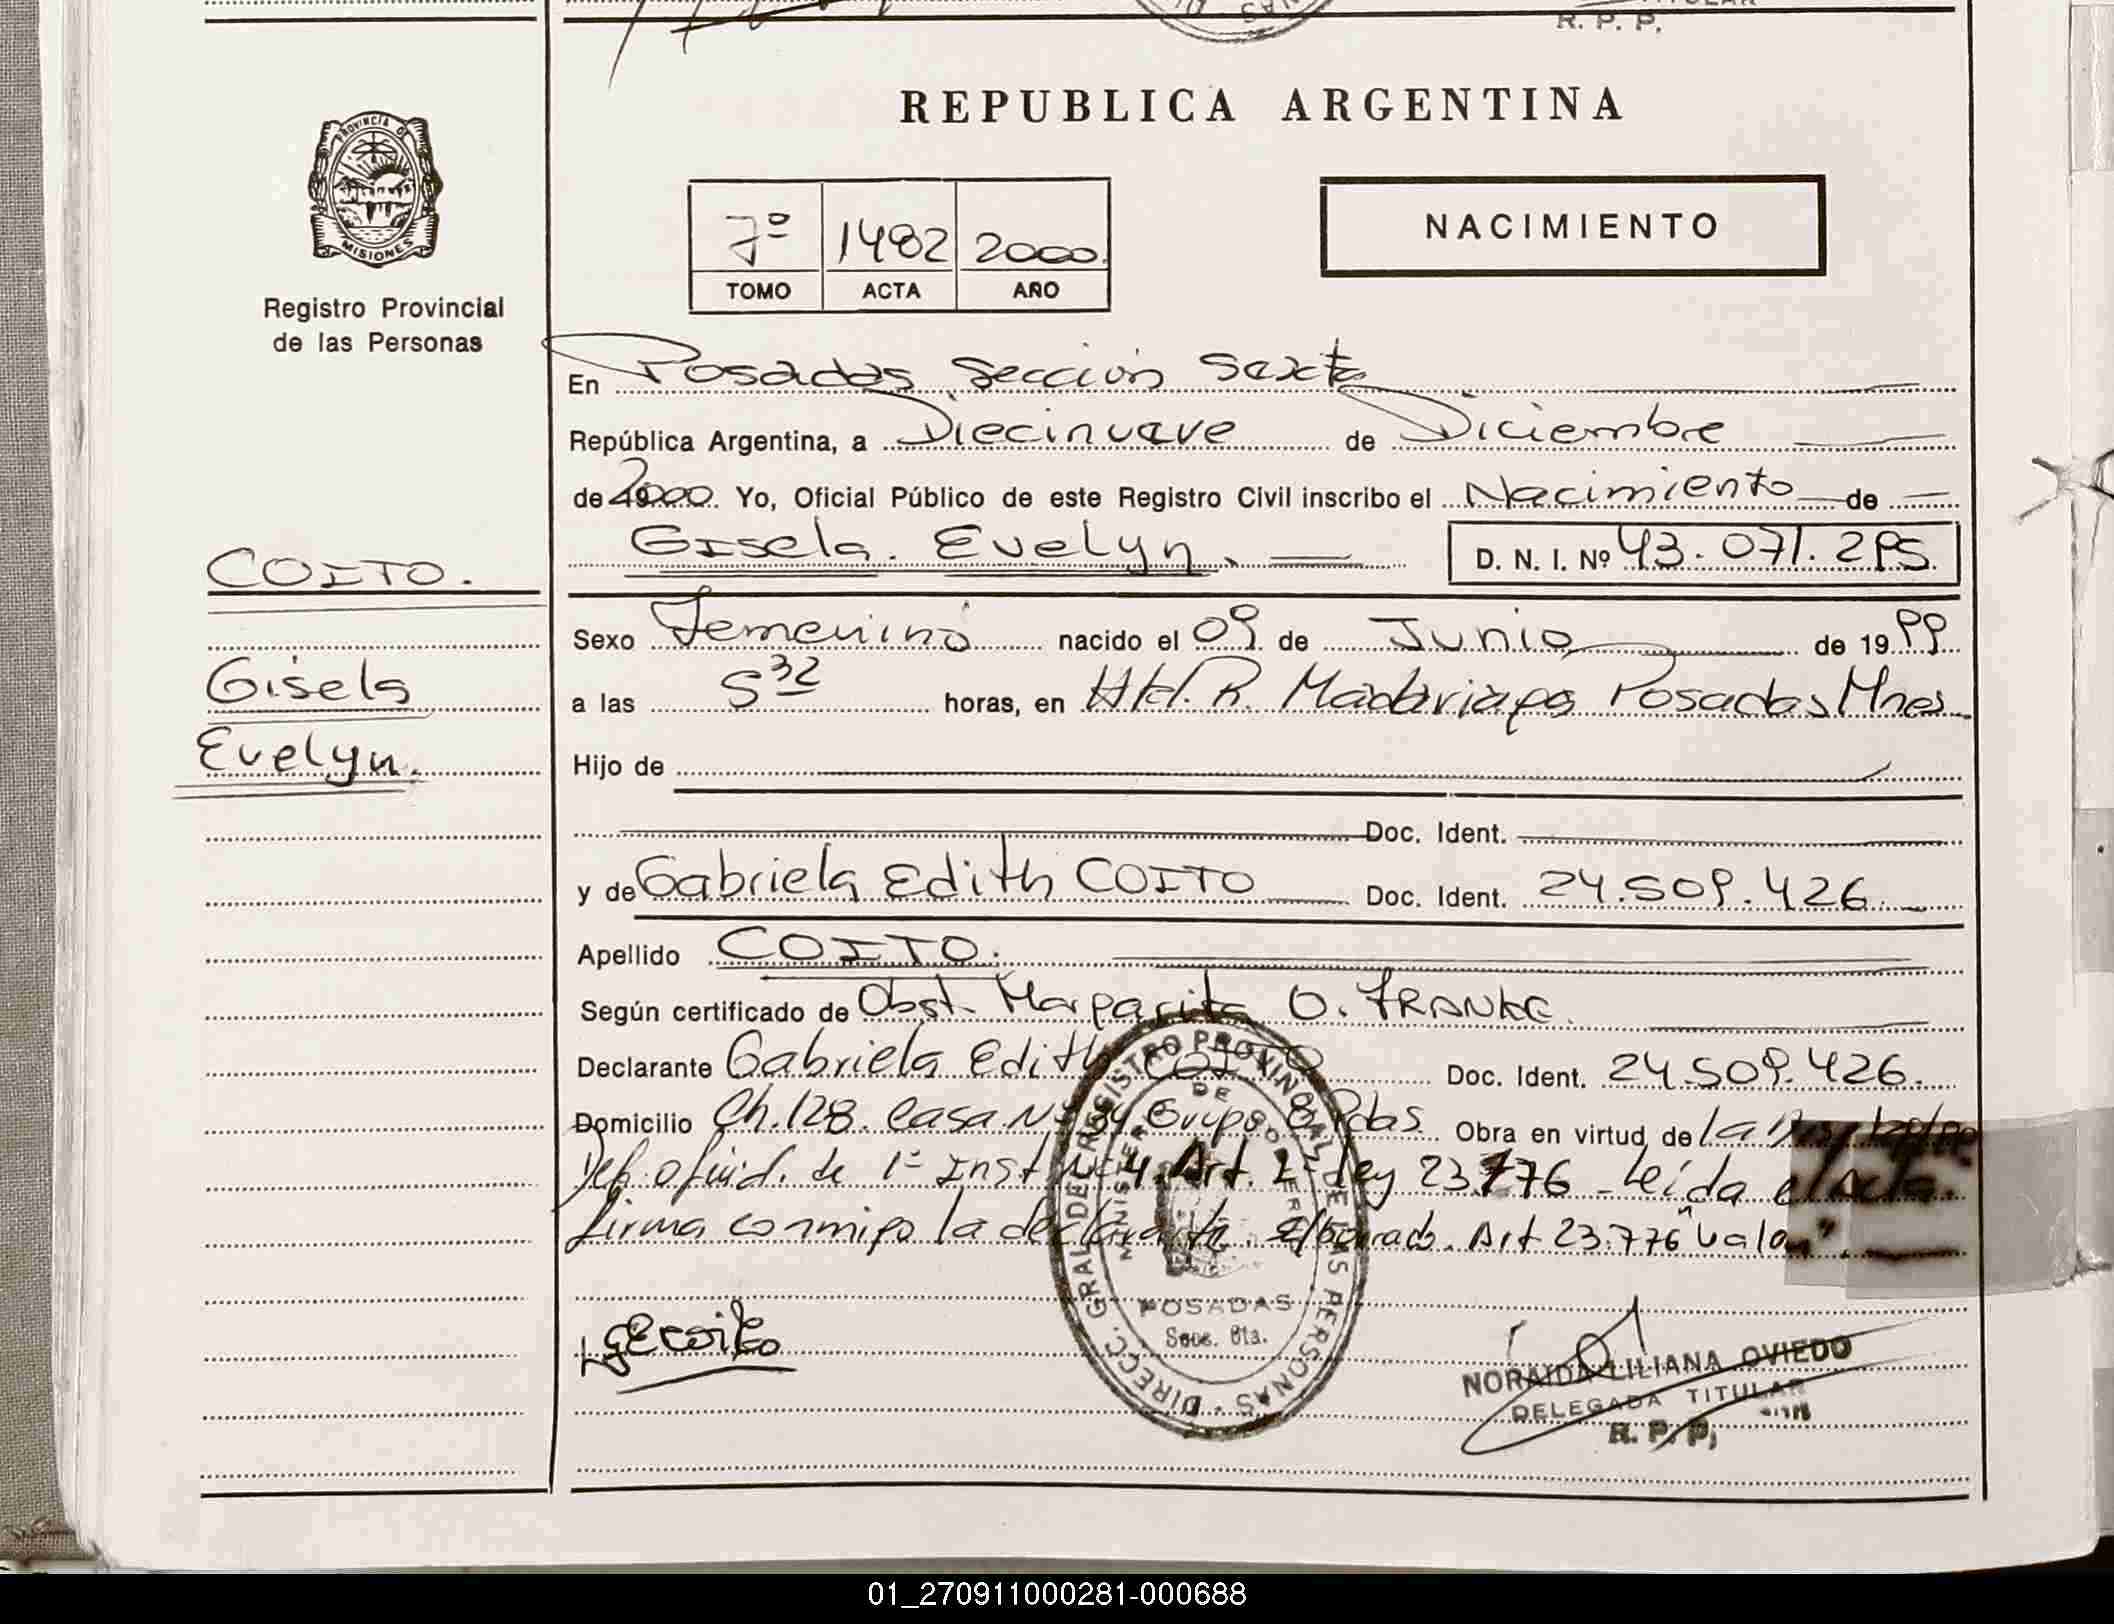 TITULAR
R. P. P.
REPUBLICA ARGENTINA
PROVINCIA DE
MISIONES
Registro Provincial
de las Personas
7º 1482 2000.
TOMO ACTA AÑO
NACIMIENTO
En Posadas Sección Sexta
República Argentina, a Diecinueve de Diciembre
de 2000. Yo, Oficial Público de este Registro Civil inscribo el Nacimiento de
Gisela Evelyn, D. N. I. Nº 43.071.295.
COITO.
Gisela
Evelyn.
Sexo Femenino nacido el 09 de Junio de 1999
a las 5 32 horas, en Htal. R. Madariaga Posadas Mnes
Hijo de
Doc. Ident.
y de Gabriela Edith COITO Doc. Ident. 24.509.426.
Apellido COITO.
Según certificado de Obst. Margarita O. FRANKE.
Declarante Gabriela Edith COITO Doc. Ident. 24.509.426.
Domicilio Ch. 128. Casa Nº Grupo 8 Pdas Obra en virtud de la
Def. oficial. de 1º Inst Nº 4. Art. 2 Ley 23.776 - Leída el Acta.
firma conmigo la declarante. E/borrado. Art 23.776 "Vale".
GECoito
DIRECC. GRAL. DE REGISTRO PROVINCIAL DE LAS PERSONAS
MINISTERIO DE GOBIERNO
POSADAS
Secc. 6ta.
NORAIDA LILIANA OVIEDO
DELEGADA TITULAR
R. P. P.
01_270911000281-000688